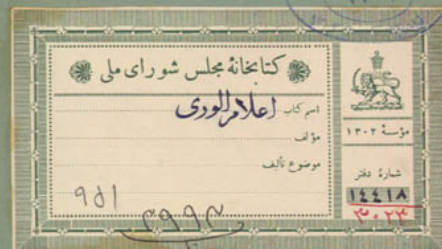 کتابخانهٔ مجلس شورای ملی
اسم کتاب اعلام الوری
مؤلف
موضوع تألیف
مؤسسهٔ ۱۳۰۲
شمارهٔ دفتر
۱۴۴۱۸
۳۰۲۳
۹۵۱